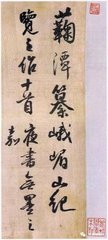 菊潭纂峨嵋山紀
覽之十首夜書無墨之